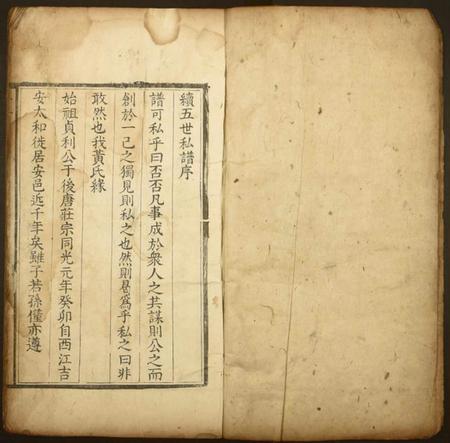 續五世私譜序
譜可私乎曰否否凡事成於衆人之共謀則公之而
創於一己之獨見則私之也然則曷爲乎私之曰非
敢然也我黃氏緣
始祖貞利公于後唐莊宗同光元年癸卯自西江吉
安太和徙居安邑近千年矣雖子若孫僅亦遵